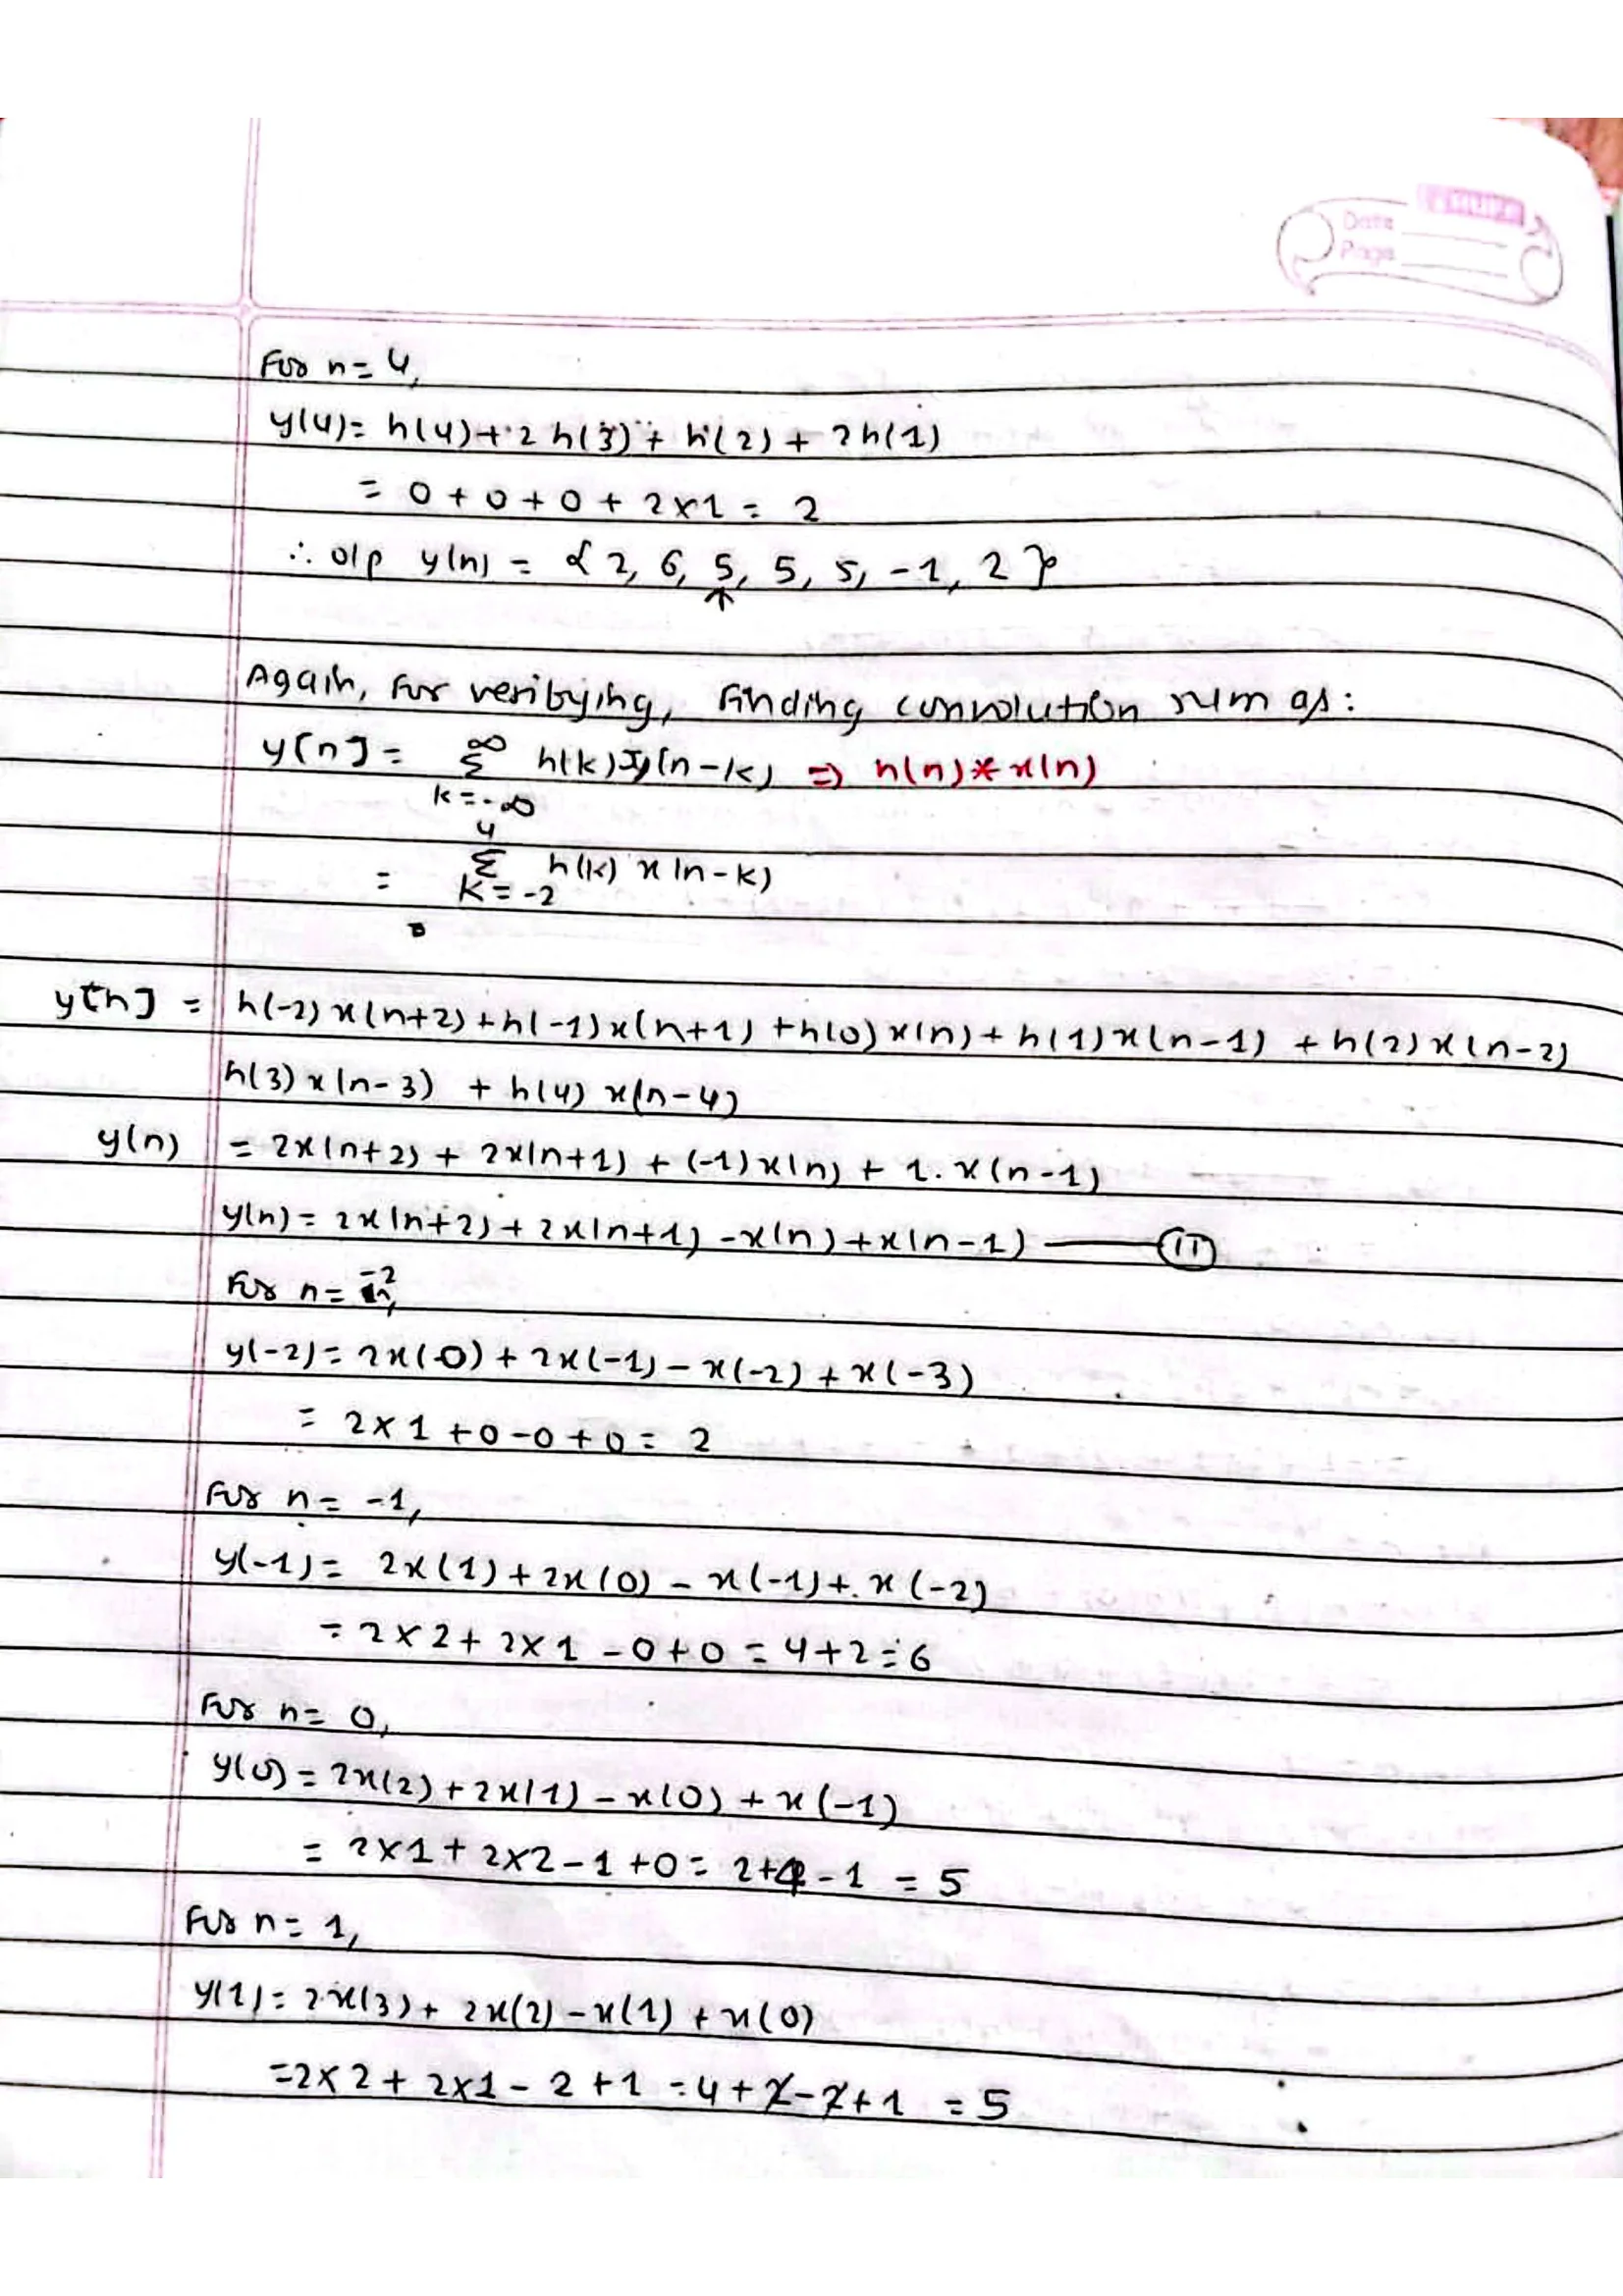 Date
Page
For n = 4,
y(4) = h(4) + 2 h(3) + h(2) + 2h(1)
= 0 + 0 + 0 + 2×1 = 2
∴ o/p y(n) = { 2, 6, 5, 5, 5, -1, 2 }
↑
Again, for verifying, finding convolution sum as:
y[n] = ∞ Σ k=-∞ h(k) x(n-k) ⇒ h(n) * x(n)
= 4 Σ K=-2 h(k) x(n-k)
y[n] = h(-2) x(n+2) + h(-1) x(n+1) + h(0) x(n) + h(1) x(n-1) + h(2) x(n-2)
h(3) x(n-3) + h(4) x(n-4)
y(n) = 2x(n+2) + 2x(n+1) + (-1) x(n) + 1. x(n-1)
y(n) = 2x(n+2) + 2x(n+1) - x(n) + x(n-1) — (II)
For n = -2,
y(-2) = 2x(-0) + 2x(-1) - x(-2) + x(-3)
= 2×1 + 0 - 0 + 0 = 2
For n = -1,
y(-1) = 2x(1) + 2x(0) - x(-1) + x(-2)
= 2×2 + 2×1 - 0 + 0 = 4+2 = 6
For n = 0,
y(0) = 2x(2) + 2x(1) - x(0) + x(-1)
= 2×1 + 2×2 - 1 + 0 = 2+4-1 = 5
For n = 1,
y(1) = 2x(3) + 2x(2) - x(1) + x(0)
= 2×2 + 2×1 - 2 + 1 = 4 + 2 - 2 + 1 = 5